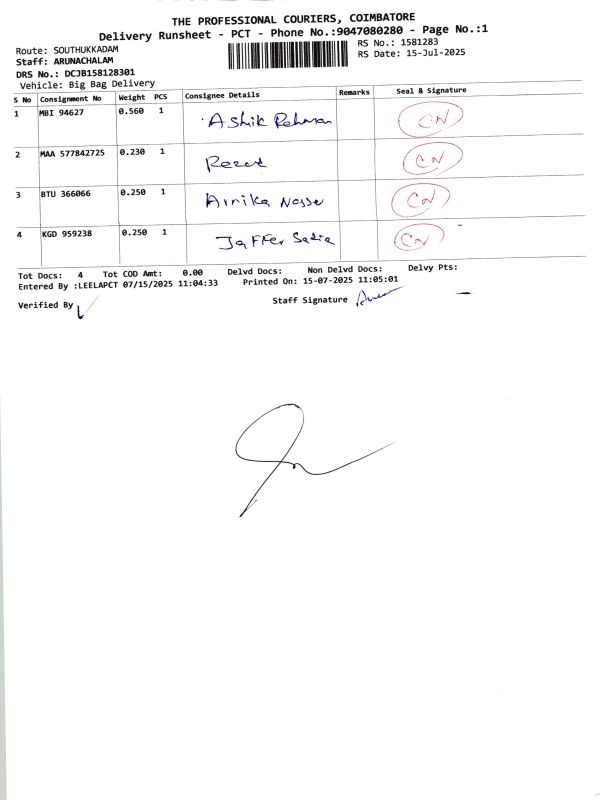 THE PROFESSIONAL COURIERS, COIMBATORE
Delivery Runsheet - PCT - Phone No.:9047080280 - Page No.:1
Route: SOUTHUKKADAM
RS No.: 1581283
Staff: ARUNACHALAM
RS Date: 15-Jul-2025
DRS No.: DCJB158128301
Vehicle: Big Bag Delivery
S No Consignment No Weight PCS Consignee Details Remarks Seal & Signature
1 MBI 94627 0.560 1 Ashik Rehman CN
2 MAA 577842725 0.230 1 CN
3 BTU 366066 0.250 1 CN
4 KGD 959238 0.250 1 Jaffer CN
Tot Docs: 4 Tot COD Amt: 0.00 Delvd Docs: Non Delvd Docs: Delvy Pts:
Entered By :LEELAPCT 07/15/2025 11:04:33 Printed On: 15-07-2025 11:05:01
Verified By Staff Signature